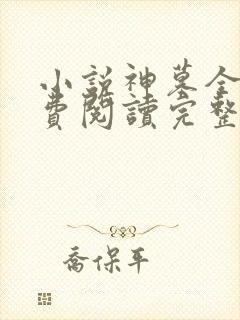 小説神墓全
費閱讀完整
喬保平